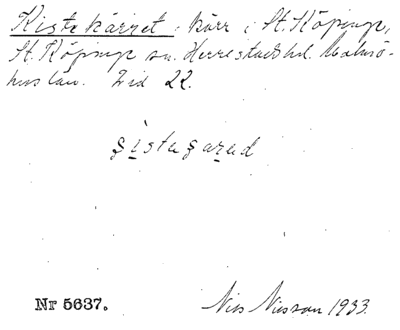 Kistekärret: kärr i St. Köpinge,
St. Köpinge sn. Herrestads hd. Malmö-
hus län. Lid 22.
şìstaşarad
Nr 5637.
Nils Nilsson 1933.